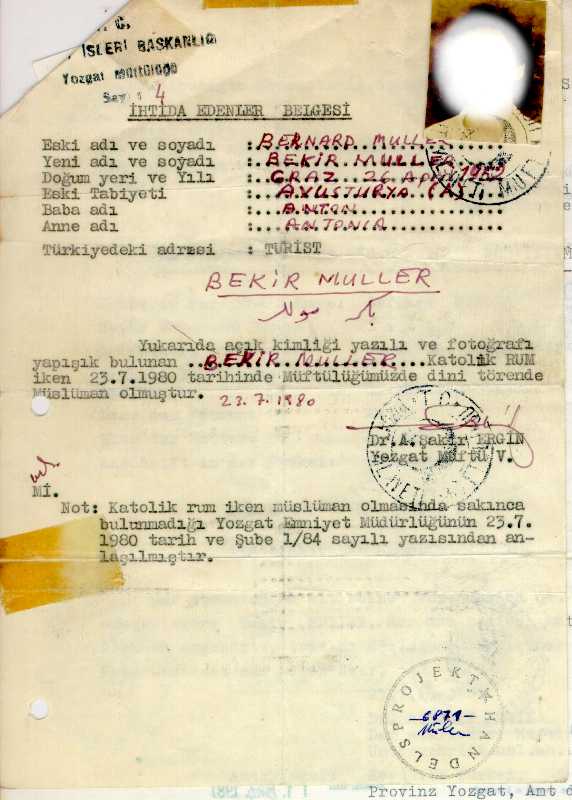 T.C.
İŞLERİ BAŞKANLIĞI
Yozgat Müftülüğü
Sayı: 4
İHTİDA EDENLER BELGESİ
Eski adı ve soyadı : BERNARD MULLER
Yeni adı ve soyadı : BEKİR MULLER
Doğum yeri ve Yılı : GRAZ 26 1952
Eski Tabiyeti : AVUSTURYA
Baba adı : ANTON
Anne adı : ANTONIA
Türkiyedeki adresi : TURİST
BEKİR MULLER
Yukarıda açık kimliği yazılı ve fotoğrafı
yapışık bulunan BEKİR MULLER Katolik RUM
iken 23.7.1980 tarihinde Müftülüğümüzde dini törende
Müslüman olmuştur. 23.7.1980
Dr.A.Şakir ERGİN
Yozgat Müftü V.
Mİ.
Not: Katolik rum iken müslüman olmasında sakınca
bulunmadığı Yozgat Emniyet Müdürlüğünün 23.7.
1980 tarih ve Şube 1/84 sayılı yazısından an-
laşılmıştır.
HANDELSPROJEKT
Provinz Yozgat, Amt d